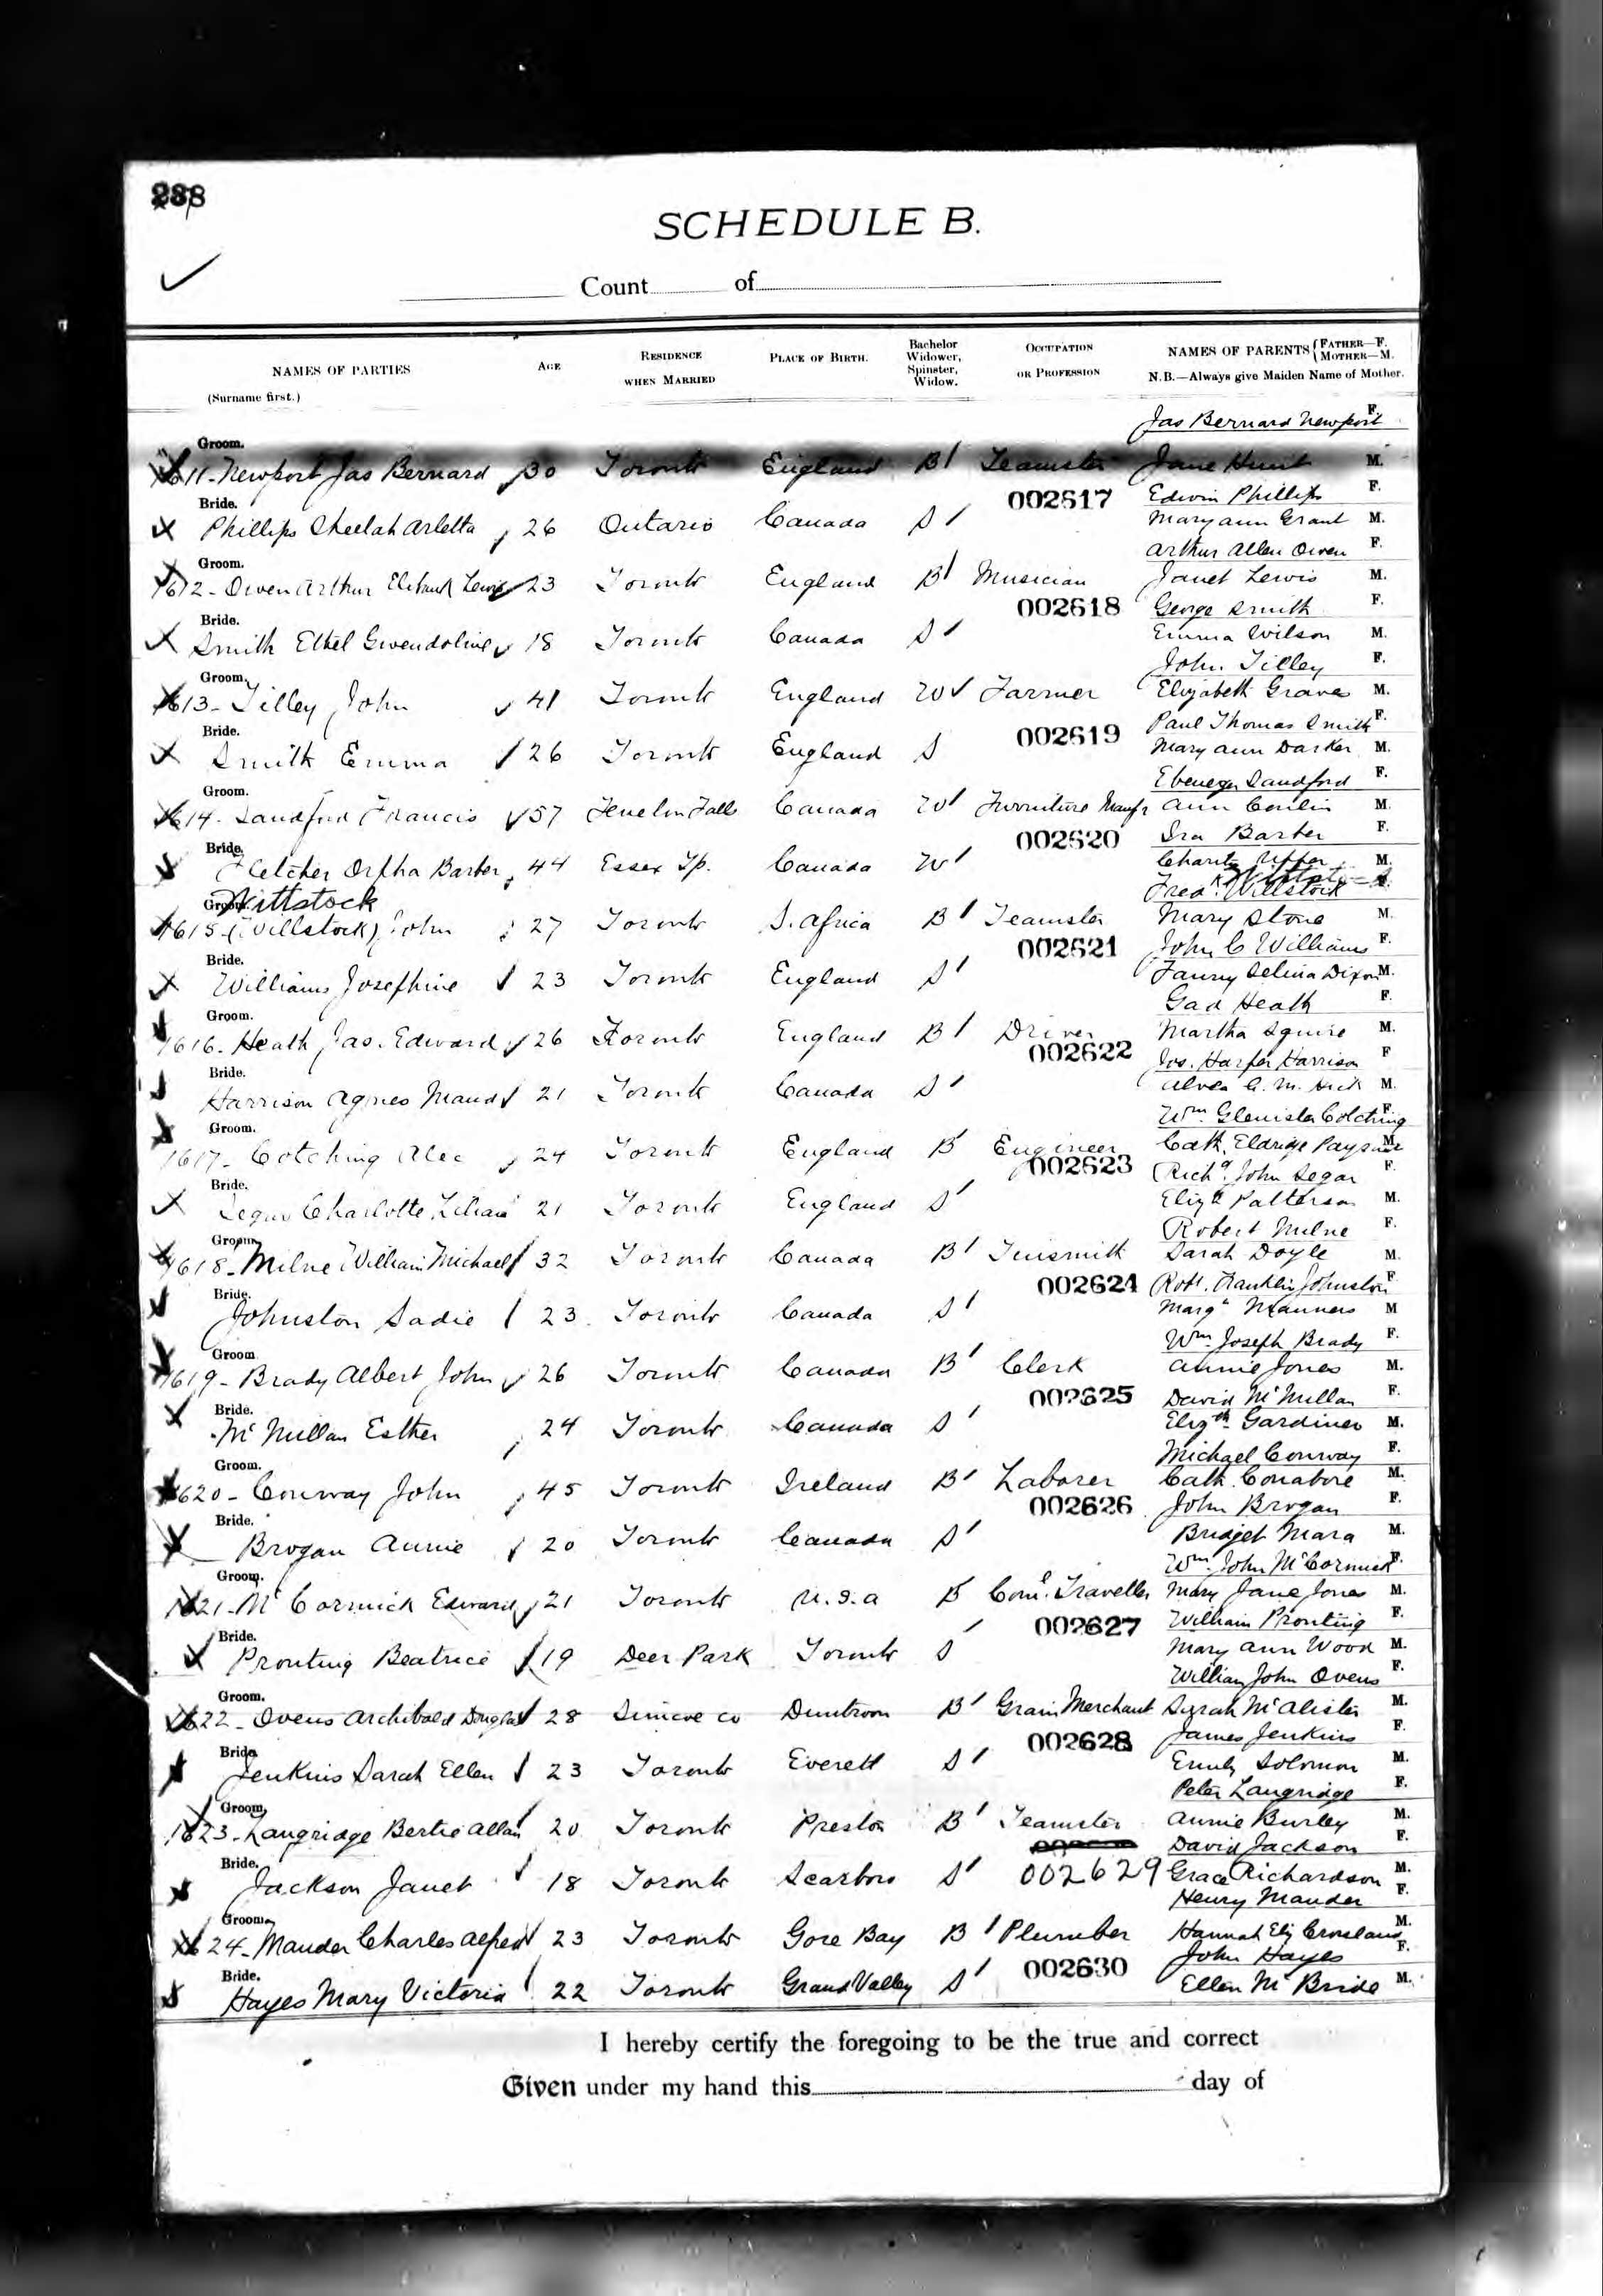 238
SCHEDULE B.
Count of
NAMES OF PARTIES
(Surname first.)
AGE
RESIDENCE
WHEN MARRIED
PLACE OF BIRTH.
Bachelor
Widower,
Spinster,
Widow.
OCCUPATION
OR PROFESSION
NAMES OF PARENTS { FATHER—F. MOTHER—M.
N.B.—Always give Maiden Name of Mother.
Jas Bernard Newport F.
Groom.
1611- Newport Jas Bernard 30 Toronto England B Teamster Jane Hunt M.
Bride. 002617 Edwin Phillips F.
Phillips Sheelah Arletta 26 Ontario Canada S Mary Ann Grant M.
Arthur Allen Owen F.
Groom.
1612- Owen Arthur Lewis 23 Toronto England B Musician Janet Lewis M.
Bride. 002618 George Smith F.
Smith Ethel Gwendoline 18 Toronto Canada S Emma Wilson M.
John Tilley F.
Groom.
1613- Tilley John 41 Toronto England W Farmer Elizabeth Graves M.
Bride. 002619 Paul Thomas Smith F.
Smith Emma 26 Toronto England S Mary Ann Darker M.
Ebenezer Sandford F.
Groom.
1614- Sandford Francis 57 Fenelon Falls Canada W Furniture Manfr Ann Conlin M.
Bride. 002620 Ira Barber F.
Fletcher Orpha Barber 44 Essex Tp. Canada W Charity Upper M.
Wittstock Fredk Willstock F.
Groom.
1615- (Willstock) John 27 Toronto S. Africa B Teamster Mary Stone M.
Bride. 002621 John C Williams F.
Williams Josephine 23 Toronto England S Fanny Selina Dixon M.
Gad Heath F.
Groom.
1616- Heath Jas. Edward 26 Toronto England B Driver Martha Squire M.
Bride. 002622 Jos. Harper Harrison F
Harrison Agnes Maud 21 Toronto Canada S M.
Wm Glenister Cotching F.
Groom.
1617- Cotching Alec 24 Toronto England B Engineer Cath. Eldridge M.
Bride. 002623 Richd. John Segar F.
Segar Charlotte Lilian 21 Toronto England S Elizth Patterson M.
Robert Milne F.
Groom
1618- Milne William Michael 32 Toronto Canada B Tinsmith Sarah Doyle M.
Bride. 002624 Robt. Franklin Johnston F.
Johnston Sadie 23 Toronto Canada S Margt Manners M
Wm. Joseph Brady F.
Groom
1619- Brady Albert John 26 Toronto Canada B Clerk Annie Jones M.
Bride. 002625 David McMillan F.
McMillan Esther 24 Toronto Canada S Elizth Gardiner M.
Michael Conway F.
Groom.
1620- Conway John 45 Toronto Ireland B Laborer Cath. Conabore M.
Bride. 002626 John Brogan F.
Brogan Annie 20 Toronto Canada S Bridget Mara M.
Wm. John McCormick F.
Groom.
1621- McCormick Edward 21 Toronto U.S.A B Coml. Traveller Mary Jane Jones M.
Bride. 002627 William Prouting F.
Prouting Beatrice 19 Deer Park Toronto S Mary Ann Wood M.
William John Ovens F.
Groom.
1622- Ovens Archibald Douglas 28 Simcoe Co Duntroon B Grain Merchant Sarah McAlister M.
Bride 002628 James Jenkins F.
Jenkins Sarah Ellen 23 Toronto Everett S Emily Solomon M.
Peter Langridge F.
Groom,
1623- Langridge Bertie Allan 20 Toronto Preston B Teamster Annie Burley M.
David Jackson F.
Bride.
Jackson Janet 18 Toronto Scarboro S 002629 Grace Richardson M.
Henry Mander F.
Groom.
1624- Mander Charles Alfred 23 Toronto Gore Bay B Plumber Hannah Eliz Crosland M.
Bride. 002630 John Hayes F.
Hayes Mary Victoria 22 Toronto Grand Valley S Ellen McBride M.
I hereby certify the foregoing to be the true and correct
Given under my hand this day of